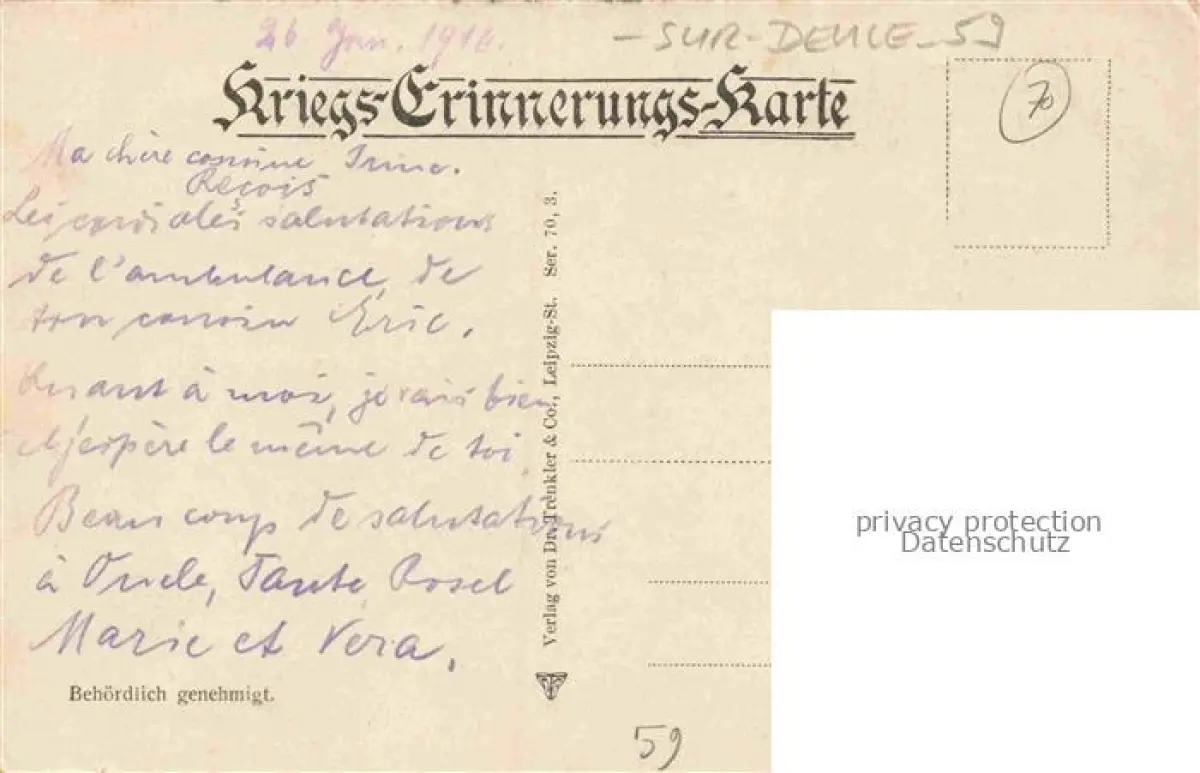 26 Jan. 1916.
-SUR-DEULE-59
Kriegs-Erinnerungs-Karte
70
Ma chère cousine Irine.
Reçois
Les cordiales salutations
de l'ambulance, de
ton cousin Eric.
Quant à moi, je vais bien
et j'espère le même de toi.
Beaucoup de salutations
à Oncle, Tante Rosel
Marie et Vera.
Behördlich genehmigt.
Verlag von Dr. Trenkler & Co., Leipzig-St. Ser. 70, 3.
59
privacy protection
Datenschutz